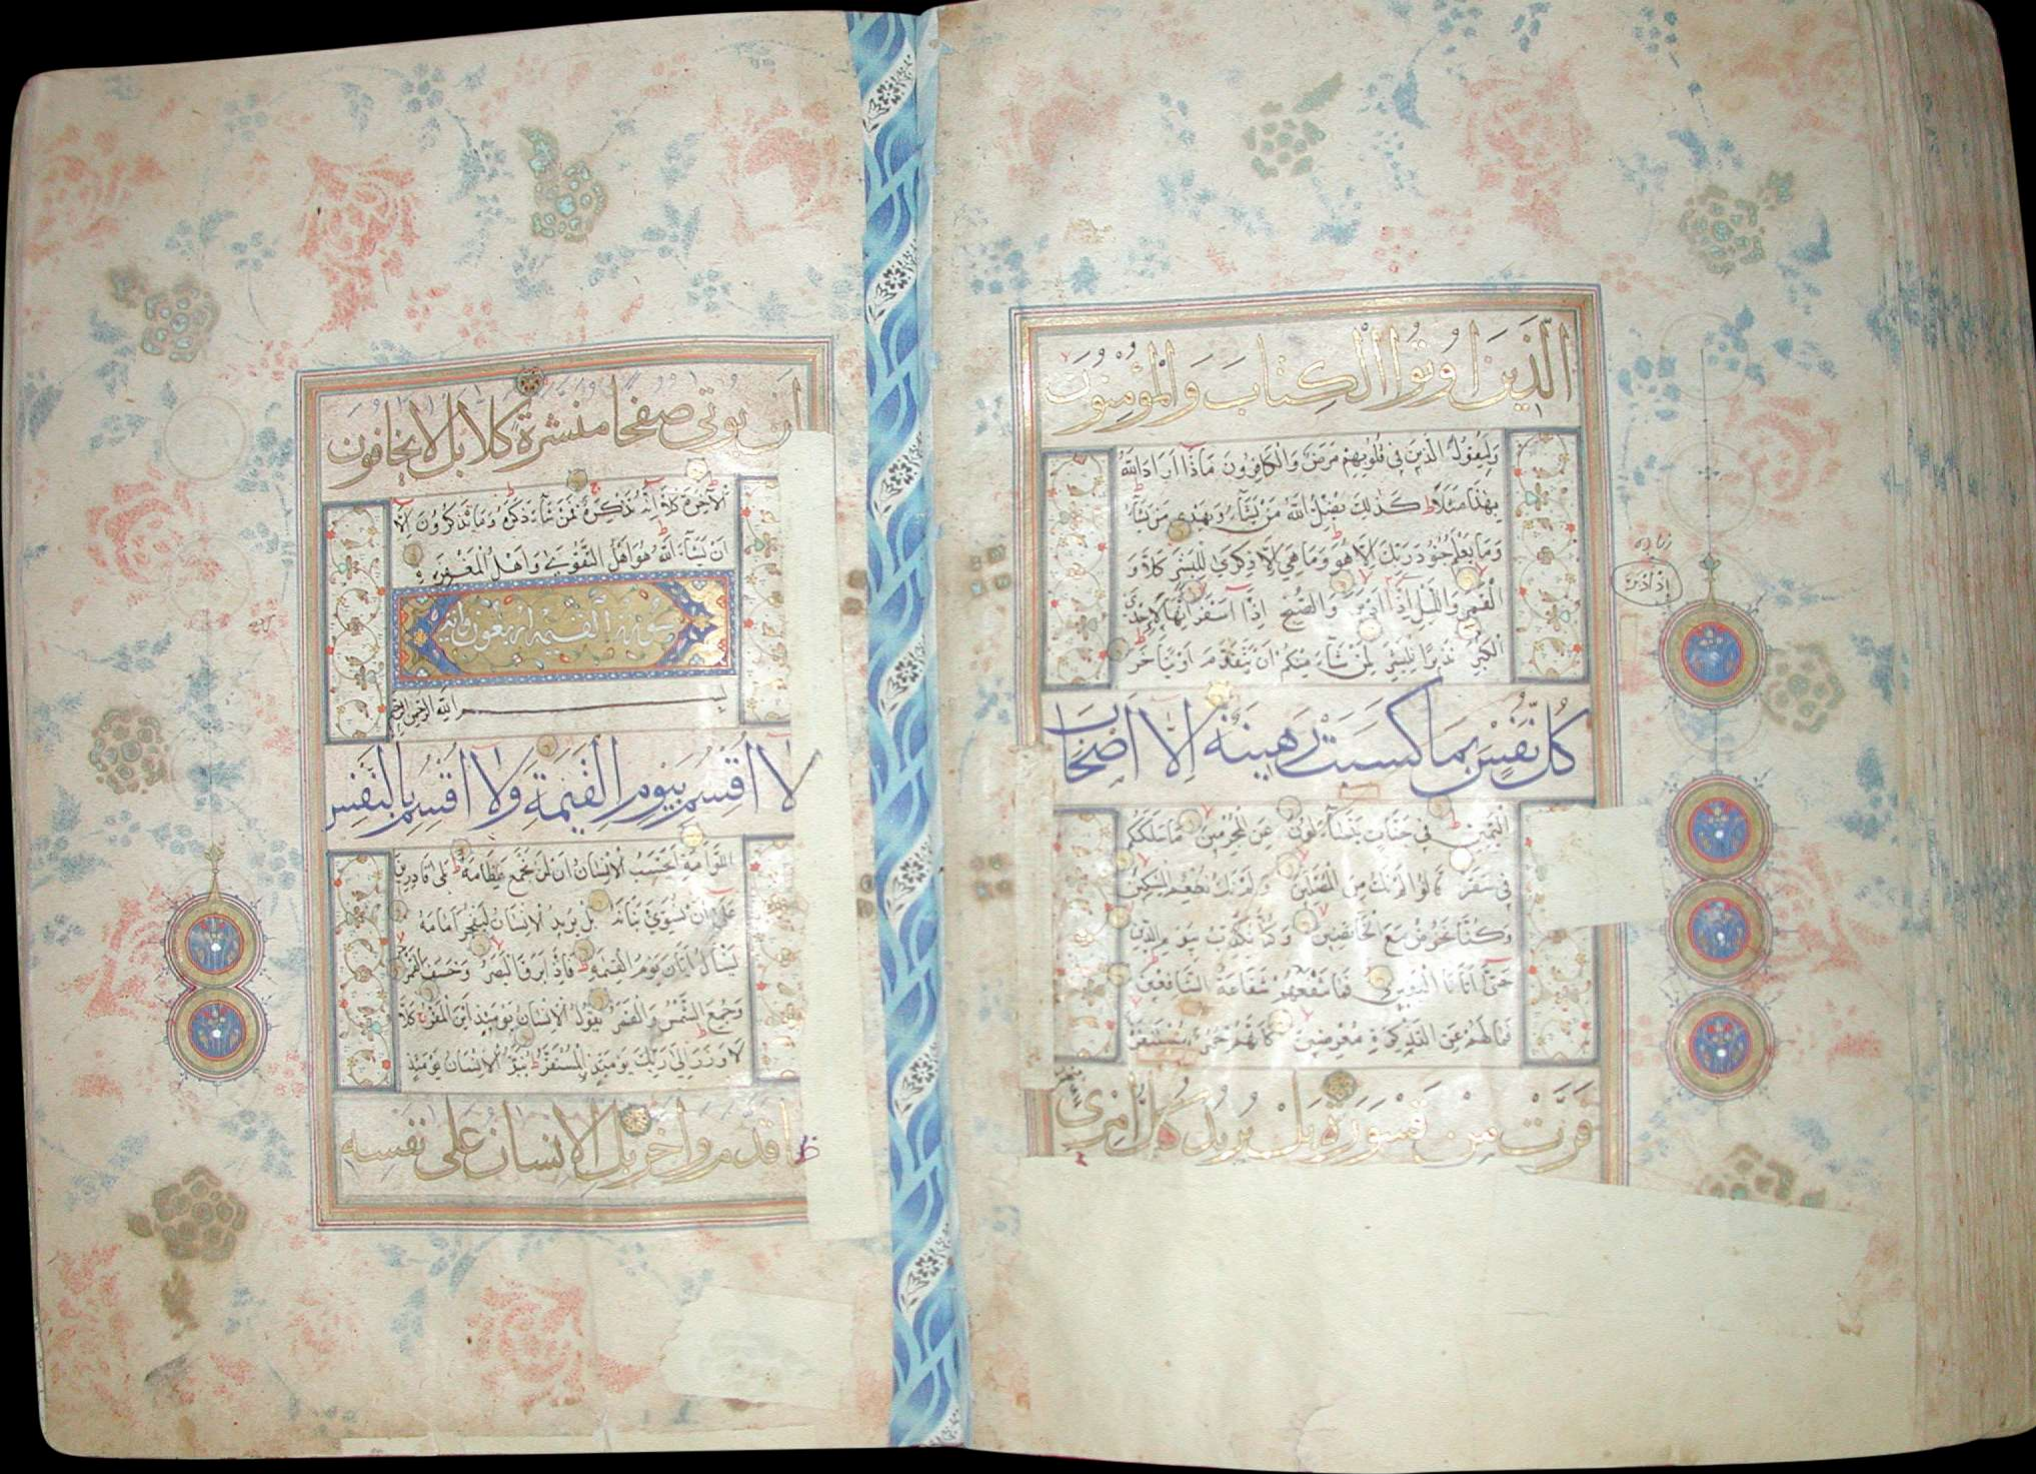 الَّذِينَ اُوتُوا الْكِتَابَ وَالْمُؤْمِنُونَ
وَلِيَقُولَ الَّذِينَ فِي قُلُوبِهِمْ مَرَضٌ وَالْكَافِرُونَ مَاذَا اَرَادَ اللَّهُ
بِهَذَا مَثَلًا كَذَلِكَ يُضِلُّ اللَّهُ مَنْ يَشَآءُ وَيَهْدِي مَنْ يَشَآءُ
وَمَا يَعْلَمُ جُنُودَ رَبِّكَ اِلَّا هُوَ وَمَا هِيَ اِلَّا ذِكْرَى لِلْبَشَرِ كَلَّا وَ
الْقَمَرِ وَاللَّيْلِ اِذَا اَدْبَرَ وَالصُّبْحِ اِذَا اَسْفَرَ اِنَّهَا لَاِحْدَى
الْكُبَرِ نَذِيرًا لِلْبَشَرِ لِمَنْ شَآءَ مِنْكُمْ اَنْ يَتَقَدَّمَ اَوْ يَتَاَخَّرَ
كُلُّ نَفْسٍ بِمَا كَسَبَتْ رَهِينَةٌ اِلَّا اَصْحَابَ
الْيَمِينِ فِي جَنَّاتٍ يَتَسَآءَلُونَ عَنِ الْمُجْرِمِينَ مَا سَلَكَكُمْ
فِي سَقَرَ قَالُوا لَمْ نَكُ مِنَ الْمُصَلِّينَ وَلَمْ نَكُ نُطْعِمُ الْمِسْكِينَ
وَكُنَّا نَخُوضُ مَعَ الْخَآئِضِينَ وَكُنَّا نُكَذِّبُ بِيَوْمِ الدِّينِ
حَتَّى اَتَانَا الْيَقِينُ فَمَا تَنْفَعُهُمْ شَفَاعَةُ الشَّافِعِينَ
فَمَا لَهُمْ عَنِ التَّذْكِرَةِ مُعْرِضِينَ كَاَنَّهُمْ حُمُرٌ مُسْتَنْفِرَةٌ
فَرَّتْ مِنْ قَسْوَرَةٍ بَلْ يُرِيدُ كُلُّ امْرِئٍ
اَنْ يُوتَى صحفا منشرة كلا بل لا يخافون
الْآخِرَةَ كَلَّا اِنَّهُ تَذْكِرَةٌ فَمَنْ شَآءَ ذَكَرَهُ وَمَا يَذْكُرُونَ اِلَّا
اَنْ يَشَآءَ اللَّهُ هُوَ اَهْلُ التَّقْوَى وَاَهْلُ الْمَغْفِرَةِ
سورة القيمة اربعون اية
بسم الله الرحمن الرحيم
لَا اُقْسِمُ بِيَوْمِ الْقِيمَةِ وَلَا اُقْسِمُ بِالنَّفْسِ
اللَّوَّامَةِ اَيَحْسَبُ الْاِنْسَانُ اَنْ لَنْ نَجْمَعَ عِظَامَهُ بَلَى قَادِرِينَ
عَلَى اَنْ نُسَوِّيَ بَنَانَهُ بَلْ يُرِيدُ الْاِنْسَانُ لِيَفْجُرَ اَمَامَهُ
يَسْاَلُ اَيَّانَ يَوْمُ الْقِيمَةِ فَاِذَا بَرِقَ الْبَصَرُ وَخَسَفَ الْقَمَرُ
وَجُمِعَ الشَّمْسُ وَالْقَمَرُ يَقُولُ الْاِنْسَانُ يَوْمَئِذٍ اَيْنَ الْمَفَرُّ كَلَّا
لَا وَزَرَ اِلَى رَبِّكَ يَوْمَئِذٍ الْمُسْتَقَرُّ يُنَبَّؤُ الْاِنْسَانُ يَوْمَئِذٍ
قدم واخر بل الانسان على نفسه